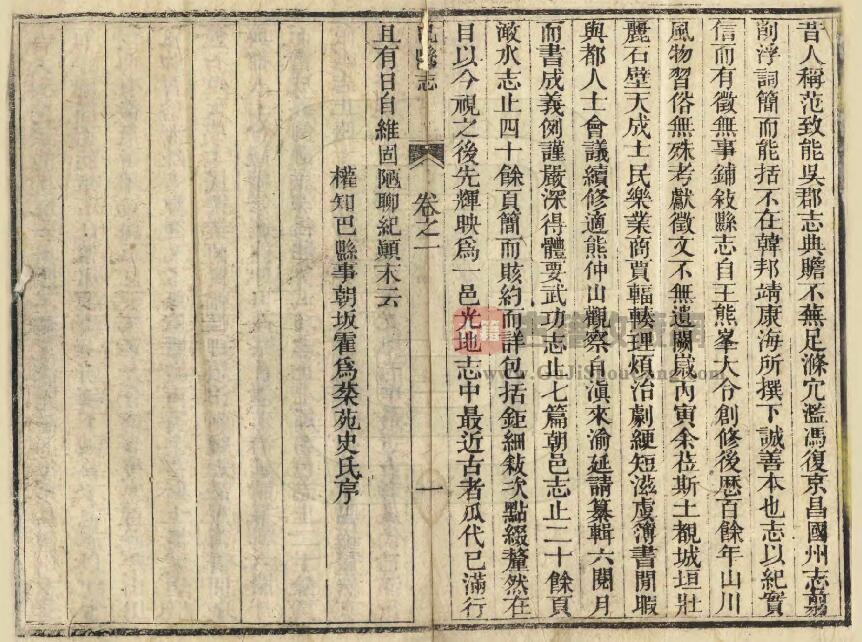 昔人稱范致能吳郡志典贍不蕪足滌宂濫馮復京昌國州志翦
削浮詞簡而能括不在韓邦靖康海所撰下誠善本也志以紀實
信而有徵無事鋪敘縣志自王熊峯大令創修後歷百餘年山川
風物習俗無殊考獻徵文不無遺闕嵗丙寅余莅斯土覩城垣壯
麗石壁天成士民樂業商賈輻輳理煩治劇綆短滋虞簿書閒暇
與都人士會議續修適熊仲山觀察自滇來渝延請纂輯六閱月
而書成義例謹嚴深得體要武功志止七篇朝邑志止二十餘頁
澉水志止四十餘頁簡而賅約而詳包括鉅細敍次點綴釐然在
目以今視之後先輝映爲一邑光地志中最近古者瓜代已滿行
縣志
卷之一
一
且有日自維固陋聊紀顚末云
權知巴縣事朝坂霍爲棻苑史氏序
古籍
www.GuJiShouCang.com